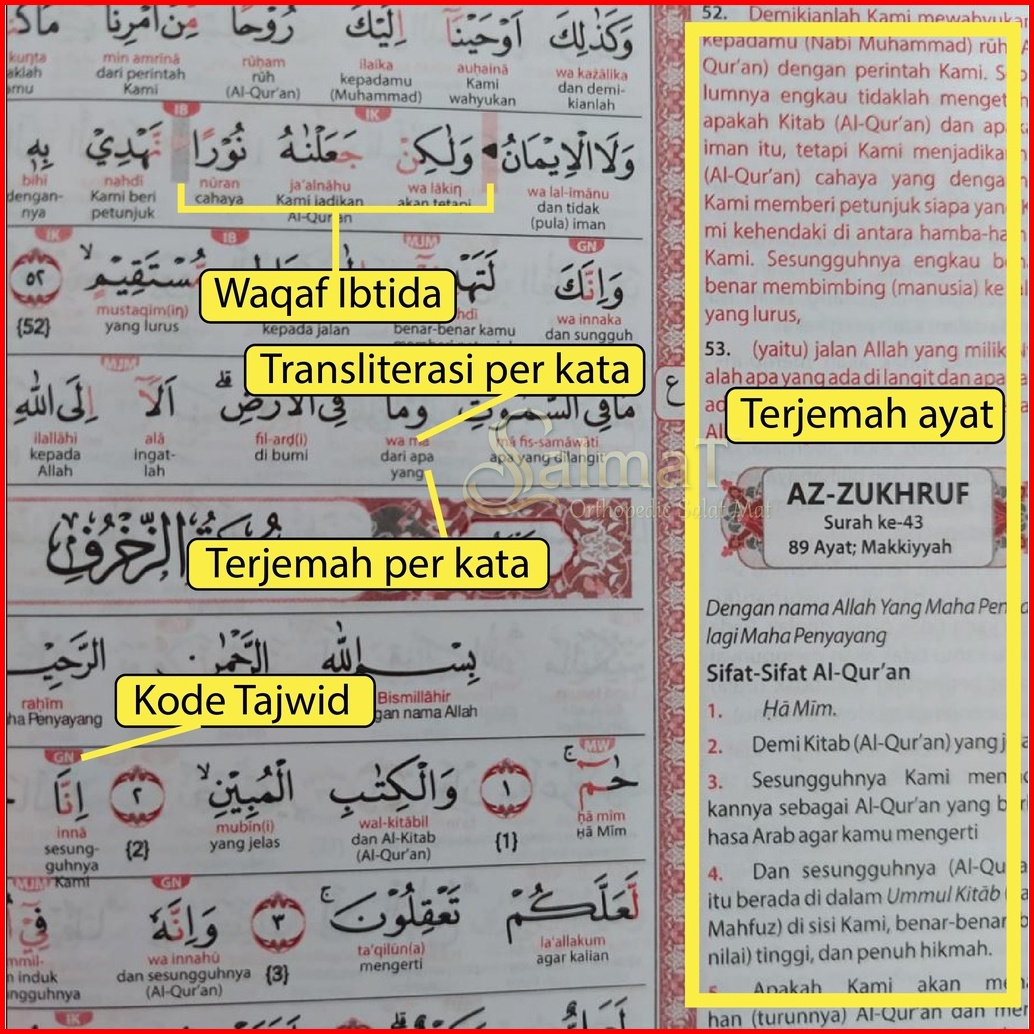 وَكَذٰلِكَ اَوْحَيْنَآ اِلَيْكَ رُوْحًا مِّنْ اَمْرِنَا
wa każālika auḥainā ilaika rūḥam min amrinā kunta
dan demi- Kami kepadamu rūh dari perintah
kianlah wahyukan (Muhammad) (Al-Qur'an) Kami
IB IK
وَلَا الْاِيْمَانُ وَلٰكِنْ جَعَلْنٰهُ نُوْرًا نَّهْدِيْ بِهٖ
wa lal-īmānu wa lākin ja'alnāhu nūran nahdī bihī
dan tidak akan tetapi Kami jadikan cahaya Kami beri dengan-
(pula) iman Al-Qur'an petunjuk nya
Waqaf Ibtida
IK IB MJM GN
وَاِنَّكَ مُّسْتَقِيْمٍۙ ٥٢
wa innaka mustaqīm(in) {52}
dan sungguh benar-benar kamu kepada jalan yang lurus
Transliterasi per kata
MJM
مَا فِى السَّمٰوٰتِ وَمَا فِى الْاَرْضِۗ اَلَآ اِلَى اللّٰهِ
mā fis-samāwāti wa mā fil-arḍ(i) alā ilallāhi
apa yang dilangit dari apa di bumi ingat- kepada
yang lah Allah
Terjemah per kata
Kode Tajwid
Bismillāhir raḥīm
GN MW
حٰمۤۚ ١ وَالْكِتٰبِ الْمُبِيْنِۙ ٢ اِنَّا
ḥā mīm {1} wal-kitābil mubīn(i) {2} innā
Ḥā Mīm dan Al-Kitab yang jelas sesung-
(Al-Qur'an) guhnya
Kami
MJM GN
لَّعَلَّكُمْ تَعْقِلُوْنَۚ ٣ وَاِنَّهٗ فِيْٓ
la'allakum ta'qilūn(a) {3} wa innahū
agar kalian mengerti dan sesungguhnya
(Al-Qur'an)
IK
52. Demikianlah Kami mewahyukan
kepadamu (Nabi Muhammad) rūh
Qur'an) dengan perintah Kami.
lumnya engkau tidaklah
apakah Kitab (Al-Qur'an) dan
iman itu, tetapi Kami
(Al-Qur'an) cahaya yang
Kami memberi petunjuk siapa
mi kehendaki di antara
Kami. Sesungguhnya engkau
benar membimbing (manusia) ke
yang lurus,
53. (yaitu) jalan Allah yang
alah apa yang ada di langit dan
Terjemah ayat
AZ-ZUKHRUF
Surah ke-43
89 Ayat; Makkiyyah
Dengan nama Allah Yang Maha
lagi Maha Penyayang
Sifat-Sifat Al-Qur'an
1. Ḥā Mīm.
2. Demi Kitab (Al-Qur'an) yang
3. Sesungguhnya Kami
kannya sebagai Al-Qur'an yang
hasa Arab agar kamu mengerti
4. Dan sesungguhnya
itu berada di dalam Ummul Kitāb
Mahfuz) di sisi Kami, benar-benar
nilai) tinggi, dan penuh hikmah.
5. Apakah Kami akan
han (turunnya) Al-Qur'an dan
SaimaT
Orthopedic Salat Mat